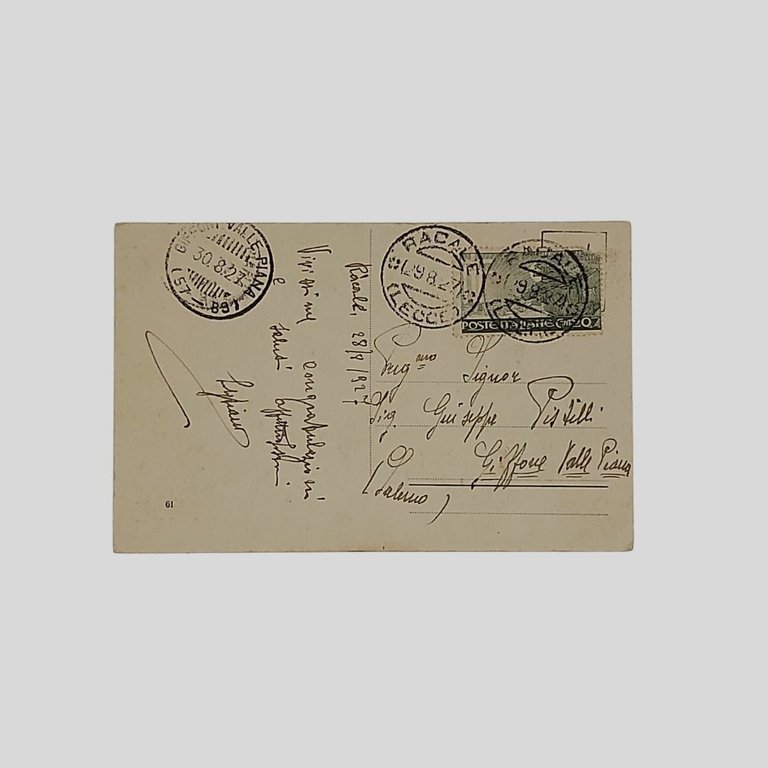 GIFFONI VALLE-PIANA
30.8.27
(57-89)
RACALE
29.8.27
(LECCE)
RACALE
29.8.27
POSTE ITALIANE CENT. 20
Racale, 28/8/927
Vivissime congratulazioni
e saluti affettuosissimi
Preg.mo Signor
Sig. Giuseppe Pistilli
Giffone Valle Piana
(Salerno)
61